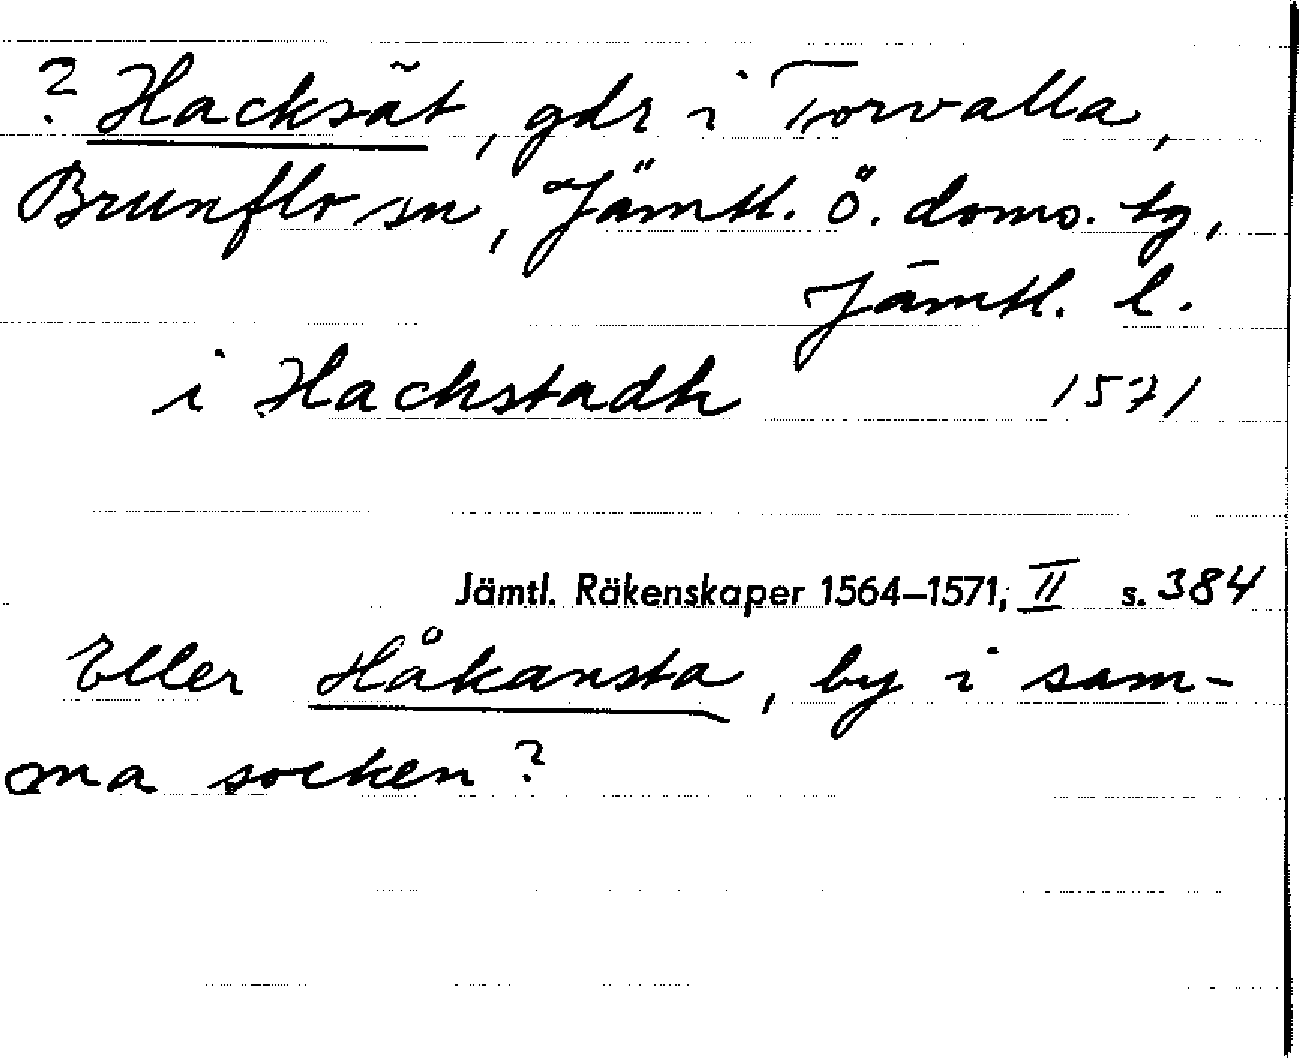 ? Hacksät, gdr i Torvalla,
Brunflo sn, Jämtl. ö. doms. tg,
Jämtl. l.
i Hackstadh 1571
Jämtl. Räkenskaper 1564–1571, II s. 384
Eller Håkansta, by i sam-
ma socken?